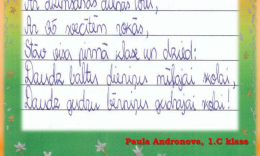 Ar 
Ar 25 svecītēm rokās,
Stāv visa pirmā klase un dzied:
Daudz baltu dieniņu mīļajai skolai,
Daudz gudru bērniņu gudrajai skolai!
Paula Andronova, 1.C klase